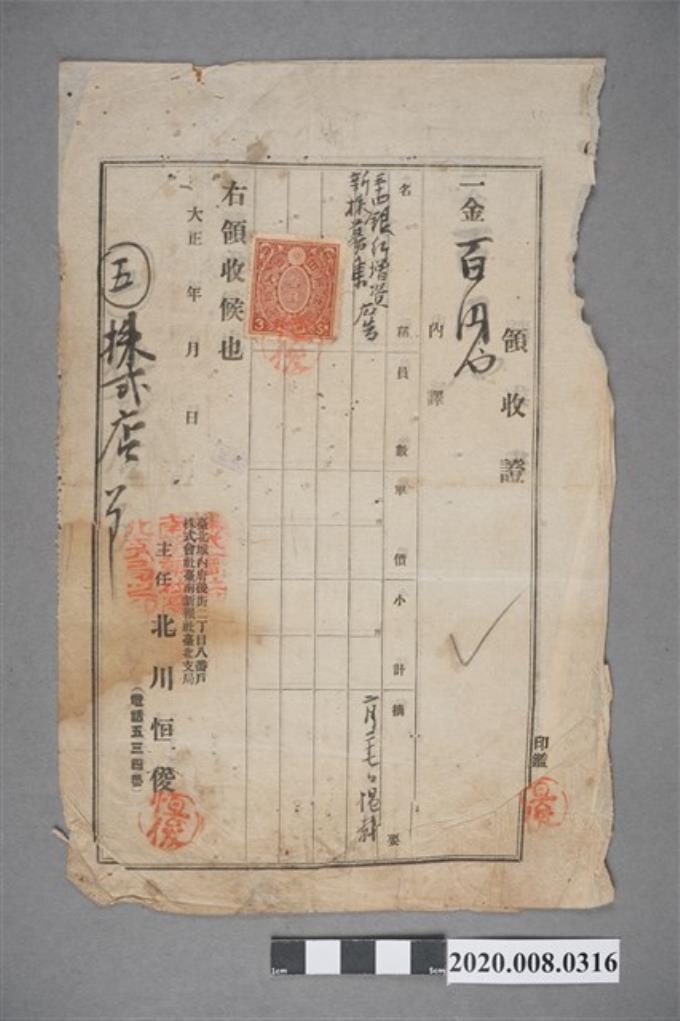 領收證
一金百円也
內譯
名稱員數單價小計摘要
銀行增資
新株募集廣告
3 Sn
右領收候也
大正 年 月 日
臺北城內府後街二丁目八番戶
株式會社臺南新報社臺北支局
主任 北川恒俊
(電話五三四番)
恒俊
五
株式店
印鑑
1cm
5cm
2020.008.0316